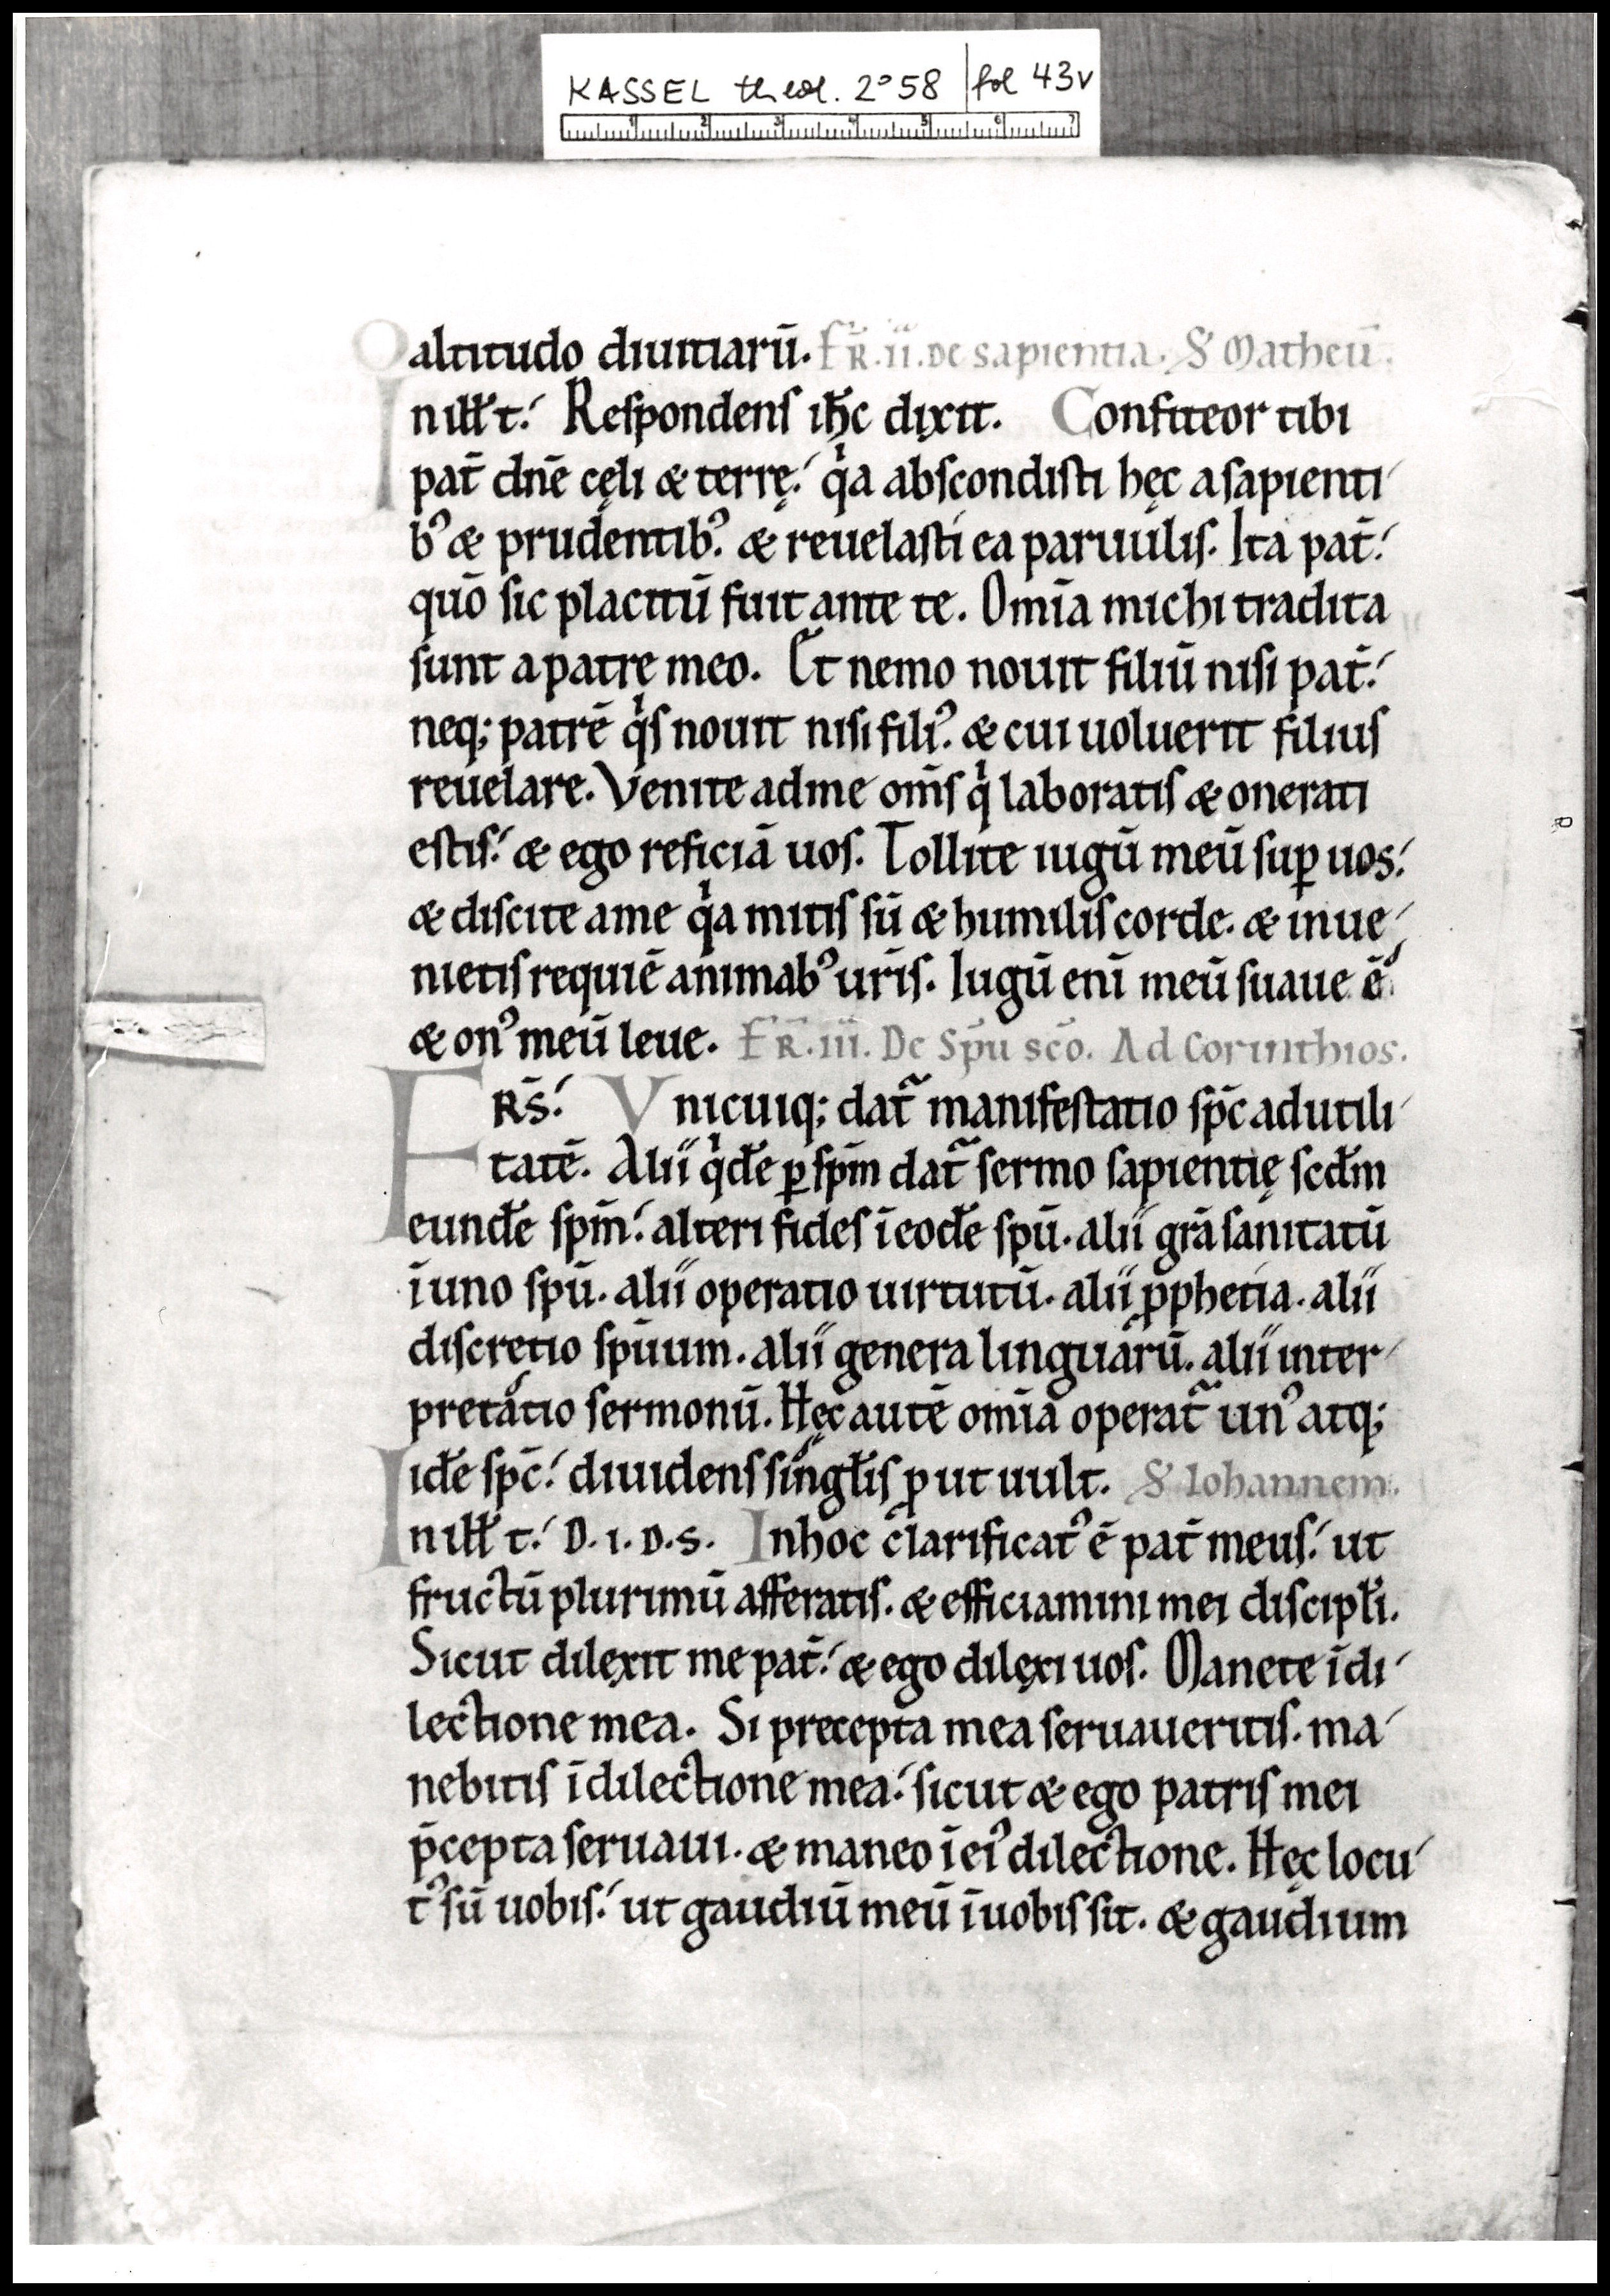 KASSEL theol. 2° 58 | fol 43v
1 2 3 4 5 6 7
O altitudo diuitiarū. FR̄. ii. De sapientia. S' Matheū.
In ill̵ t̄. Respondens ih̄c dixit. Confiteor tibi
pat̄ dn̄e cęli & terrę. qͥa abscondisti hęc a sapienti
b᾿ & prudentib᾿. & reuelasti ea paruulis. Ita pat̄.
quō sic placitū fuit ante te. Om̄ia michi tradita
sunt a patre meo. Et nemo nouit filiū nisi pat̄.
neq; patrē qͥs nouit nisi fili᾿. & cui uoluerit filius
reuelare. Venite ad me om̄s qͥ laboratis & onerati
estis. & ego reficiā uos. Tollite iugū meū suꝑ uos.
& discite a me qͥa mitis sū & humilis corde. & inue
nietis requiē animab᾿ ur̄is. Iugū eni̅ meū suaue ē.
& on᾿ meū leue. FR̄. iii. De Sp̄u sc̄o. Ad Corinthios.
FRS̄. Vnicuiq; dat᷑ manifestatio sp̄c ad utili
tatē. Alii qͥdē ꝑ sp̄m dat᷑ sermo sapientię scd̄m
eundē sp̄m. alteri fides ī eodē sp̄u. alii gr̄a sanitatū
ī uno sp̄u. alii operatio uirtutū. alii ꝓphetia. alii
discretio sp̄uum. alii genera linguarū. alii inter
pretatio sermonū. Hęc autē om̄ia operat᷑ un᾿ atq;
idē sp̄c. diuidens singl̵is ꝓut uult. S' Iohannem.
In ill̵ t̄. D. I. D. S. In hoc clarificat᾿ ē pat̄ meus. ut
fructū plurimū afferatis. & efficiamini mei discipl̵i.
Sicut dilexit me pat̄. & ego dilexi uos. Manete ī di
lectione mea. Si precepta mea seruaueritis. ma
nebitis ī dilectione mea. sicut & ego patris mei
p̄cepta seruaui. & maneo ī ei᾿ dilectione. Hęc locu
t᾿ sū uobis. ut gaudiū meū ī uobis sit. & gaudium